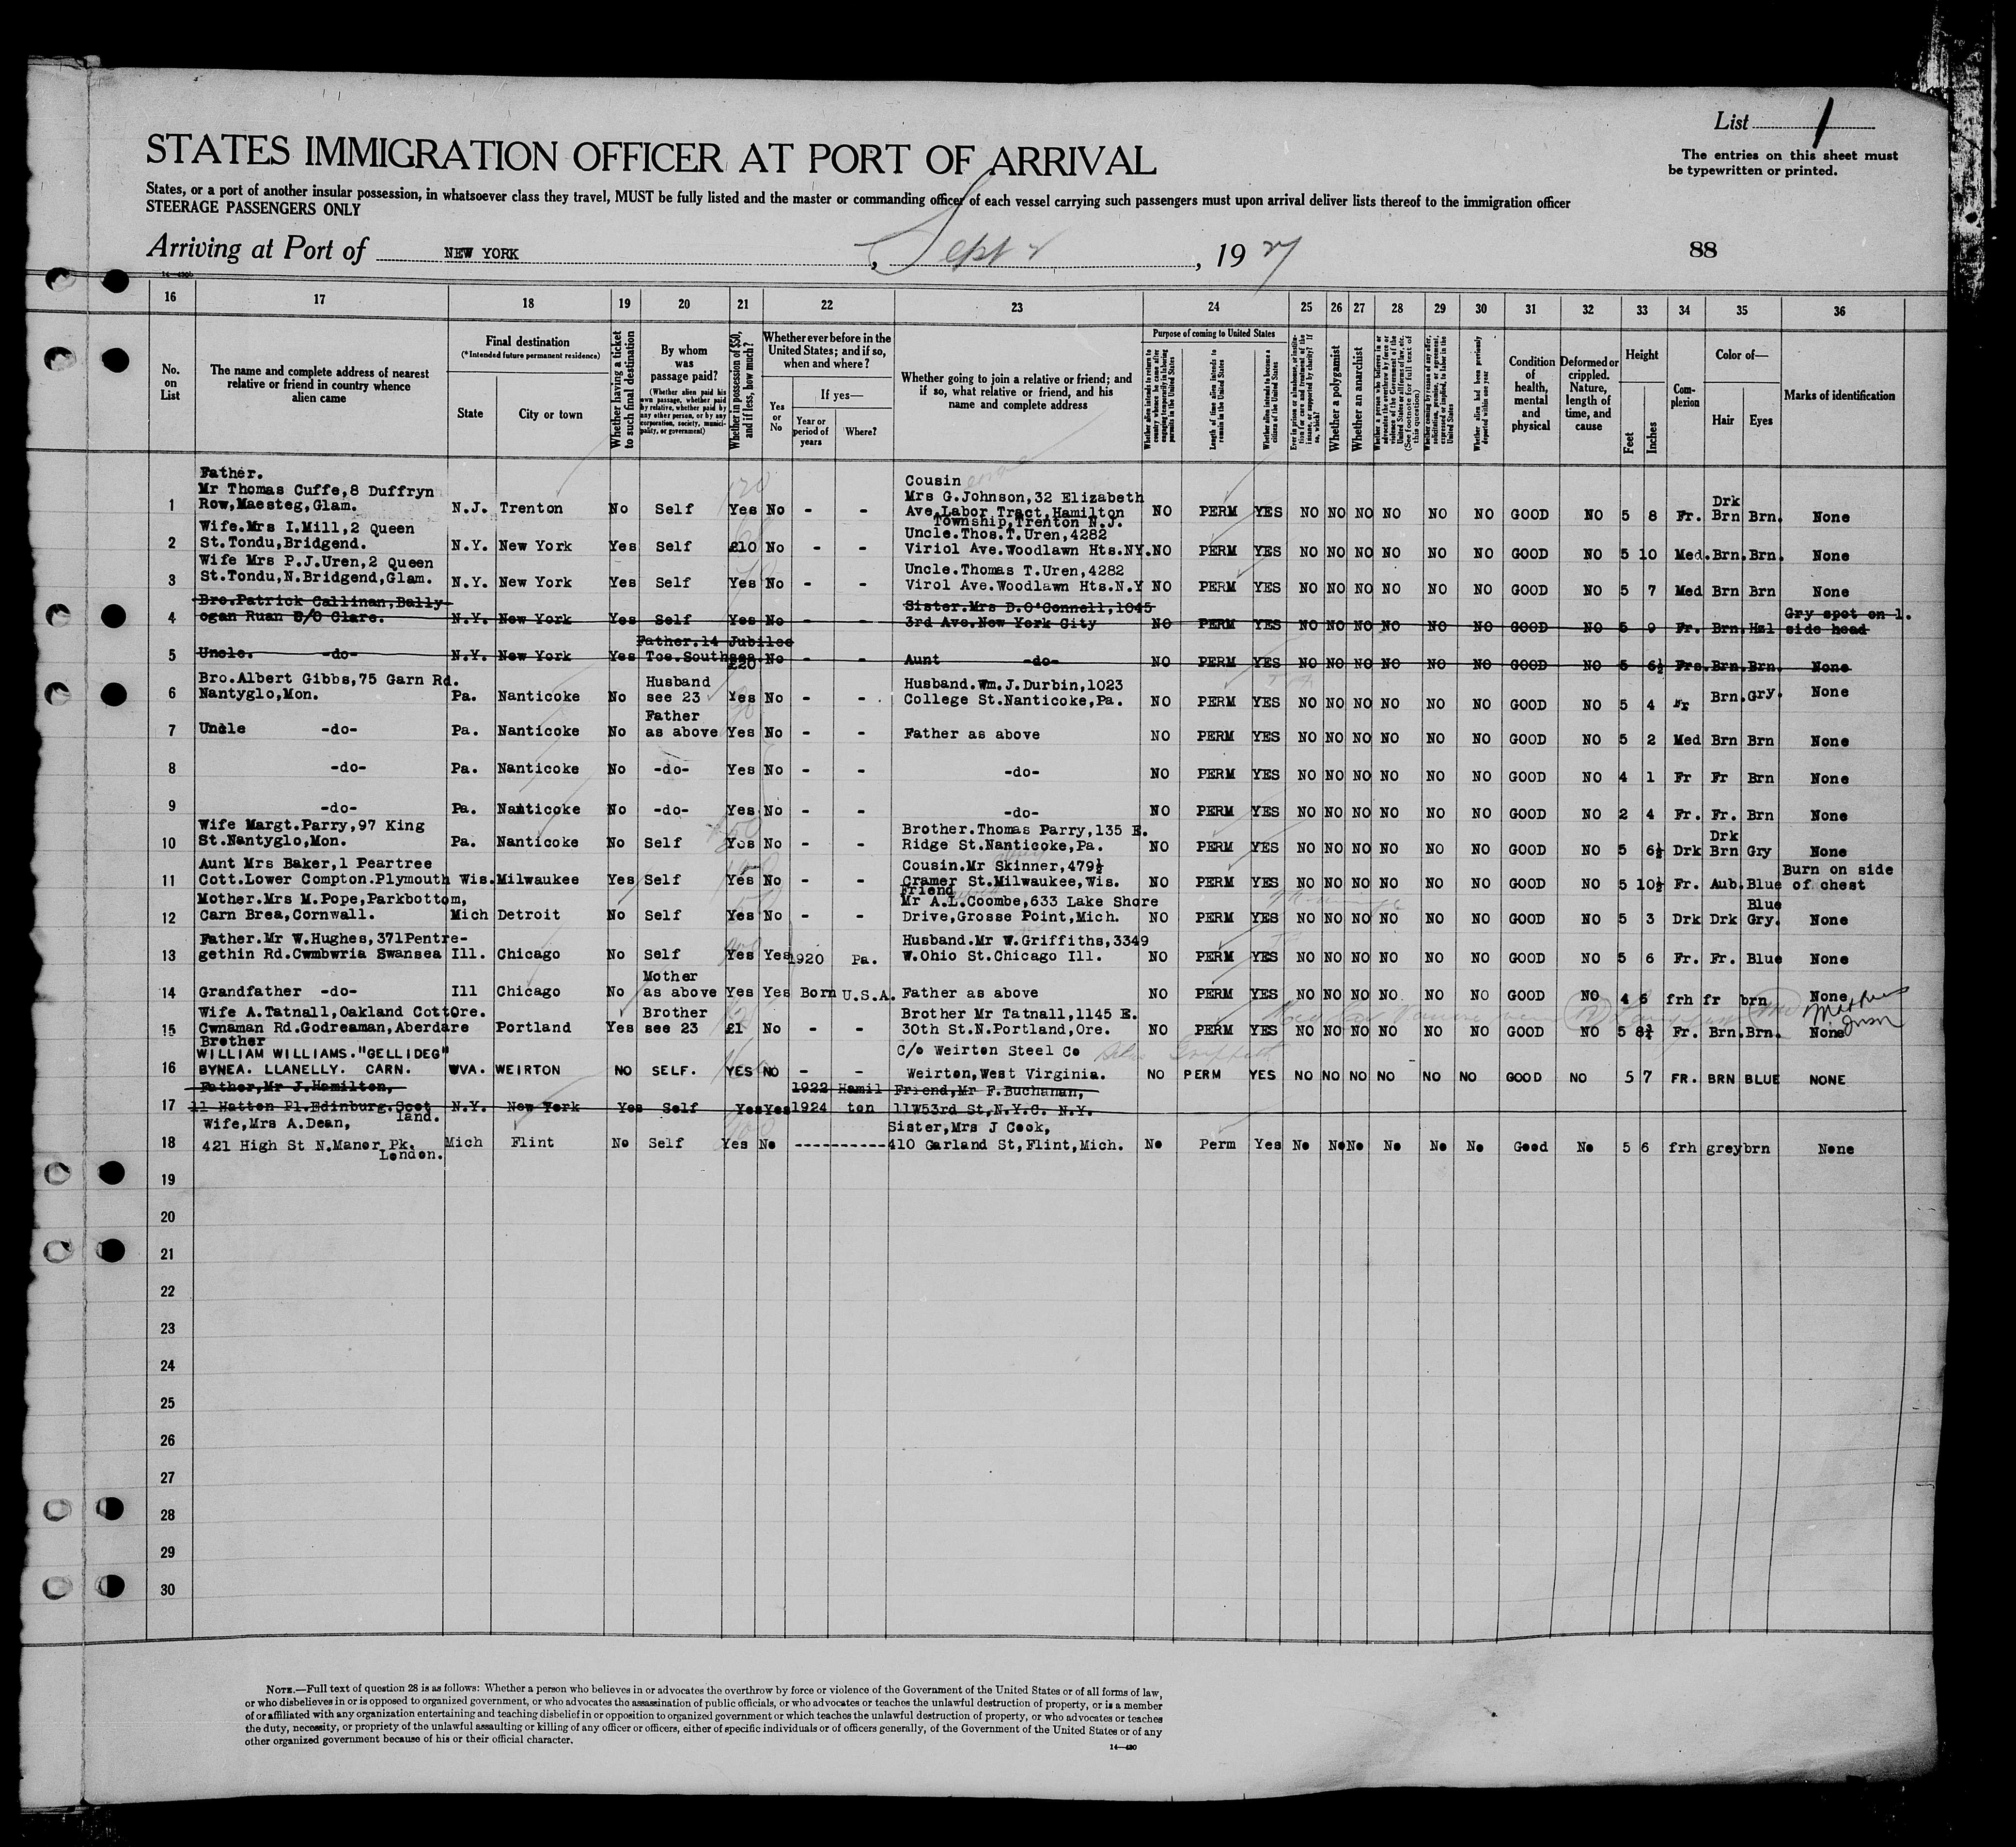 List 1
The entries on this sheet must
be typewritten or printed.
STATES IMMIGRATION OFFICER AT PORT OF ARRIVAL
States, or a port of another insular possession, in whatsoever class they travel, MUST be fully listed and the master or commanding officer of each vessel carrying such passengers must upon arrival deliver lists thereof to the immigration officer
STEERAGE PASSENGERS ONLY
Arriving at Port of NEW YORK, Sept 2, 1927
88
14-430b
16 17 18 19 20 21 22 23 24 25 26 27 28 29 30 31 32 33 34 35 36
No. on List
The name and complete address of nearest relative or friend in country whence alien came
Final destination
(*Intended future permanent residence)
State
City or town
Whether having a ticket to such final destination
By whom was passage paid?
(Whether alien paid his own passage, whether paid by relative, whether paid by any other person, or by any corporation, society, municipality, or government)
Whether in possession of $50, and if less, how much?
Whether ever before in the United States; and if so, when and where?
Yes or No
If yes—
Year or period of years
Where?
Whether going to join a relative or friend; and if so, what relative or friend, and his name and complete address
Purpose of coming to United States
Whether alien intends to return to country whence he came after engaging temporarily in laboring pursuits in the United States
Length of time alien intends to remain in the United States
Whether alien intends to become a citizen of the United States
Ever in prison or almshouse, or institution for care and treatment of the insane, or supported by charity? If so, which?
Whether a polygamist
Whether an anarchist
Whether a person who believes in or advocates the overthrow by force or violence of the Government of the United States or all forms of law, etc. (See footnote for full text of this question)
Whether coming by reason of any offer, solicitation, promise, or agreement, expressed or implied, to labor in the United States
Whether alien had been previously deported within one year
Condition of health, mental and physical
Deformed or crippled. Nature, length of time, and cause
Height
Feet
Inches
Complexion
Color of—
Hair
Eyes
Marks of identification
Father.
Mr Thomas Cuffe,8 Duffryn
1 Row,Maesteg,Glam. N.J. Trenton No Self Yes No - - Cousin
Mrs G.Johnson,32 Elizabeth
Ave,Labor Tract,Hamilton
Township,Trenton N.J. NO PERM YES NO NO NO NO NO NO GOOD NO 5 8 Fr. Drk Brn Brn. None
Wife.Mrs I.Mill,2 Queen
2 St.Tondu,Bridgend. N.Y. New York Yes Self £10 No - - Uncle.Thos.T.Uren,4282
Viriol Ave.Woodlawn Hts.NY. NO PERM YES NO NO NO NO NO NO GOOD NO 5 10 Med. Brn. Brn. None
Wife Mrs P.J.Uren,2 Queen
3 St.Tondu,N.Bridgend,Glam. N.Y. New York Yes Self Yes No - - Uncle.Thomas T.Uren,4282
Virol Ave.Woodlawn Hts.N.Y NO PERM YES NO NO NO NO NO NO GOOD NO 5 7 Med Brn Brn None
Bro.Patrick Callinan,Bally-
4 ogan Ruan B/O Clare. N.Y. New York Yes Self Yes No - - Sister.Mrs D.O'Connell,1045
3rd Ave.New York City NO PERM YES NO NO NO NO NO NO GOOD NO 5 9 Fr. Brn. Hzl Gry spot on l.
side head
5 Uncle. -do- N.Y. New York Yes Father.14 Jubilee
Tce.Southsea £20 No - - Aunt -do- NO PERM YES NO NO NO NO NO NO GOOD NO 5 6½ Frs. Brn. Brn. None
Bro.Albert Gibbs,75 Garn Rd.
6 Nantyglo,Mon. Pa. Nanticoke No Husband
see 23 Yes No - - Husband.Wm.J.Durbin,1023
College St.Nanticoke,Pa. NO PERM YES NO NO NO NO NO NO GOOD NO 5 4 Fr Brn. Gry. None
7 Uncle -do- Pa. Nanticoke No Father
as above Yes No - - Father as above NO PERM YES NO NO NO NO NO NO GOOD NO 5 2 Med Brn Brn None
8 -do- Pa. Nanticoke No -do- Yes No - - -do- NO PERM YES NO NO NO NO NO NO GOOD NO 4 1 Fr Fr Brn None
9 -do- Pa. Nanticoke No -do- Yes No - - -do- NO PERM YES NO NO NO NO NO NO GOOD NO 2 4 Fr. Fr. Brn None
Wife Margt.Parry,97 King
10 St.Nantyglo,Mon. Pa. Nanticoke No Self Yes No - - Brother.Thomas Parry,135 E.
Ridge St.Nanticoke,Pa. NO PERM YES NO NO NO NO NO NO GOOD NO 5 6½ Drk Drk Brn Gry None
Aunt Mrs Baker,1 Peartree
11 Cott.Lower Compton.Plymouth Wis. Milwaukee Yes Self Yes No - - Cousin.Mr Skinner,479½
Cramer St.Milwaukee,Wis. NO PERM YES NO NO NO NO NO NO GOOD NO 5 10½ Fr. Aub. Blue Burn on side
of chest
Mother.Mrs M.Pope,Parkbottom,
12 Carn Brea,Cornwall. Mich Detroit No Self Yes No - - Friend
Mr A.L.Coombe,633 Lake Shore
Drive,Grosse Point,Mich. NO PERM YES NO NO NO NO NO NO GOOD NO 5 3 Drk Drk Blue Gry. None
Father.Mr W.Hughes,371Pentre-
13 gethin Rd.Cwmbwria Swansea Ill. Chicago No Self Yes Yes 1920 Pa. Husband.Mr W.Griffiths,3349
W.Ohio St.Chicago Ill. NO PERM YES NO NO NO NO NO NO GOOD NO 5 6 Fr. Fr. Blue None
14 Grandfather -do- Ill Chicago No Mother
as above Yes Yes Born U.S.A. Father as above NO PERM YES NO NO NO NO NO NO GOOD NO 4 6 frh fr brn None
Wife A.Tatnall,Oakland Cott Ore.
15 Cwnaman Rd.Godreaman,Aberdare Portland Yes Brother
see 23 £1 No - - Brother Mr Tatnall,1145 E.
30th St.N.Portland,Ore. NO PERM YES NO NO NO NO NO NO GOOD NO 5 8¾ Fr. Brn. Brn. None
Brother
WILLIAM WILLIAMS."GELLIDEG"
16 BYNEA. LLANELLY. CARN. WVA. WEIRTON NO SELF. YES NO - - C/o Weirton Steel Co
Weirton,West Virginia. NO PERM YES NO NO NO NO NO NO GOOD NO 5 7 FR. BRN BLUE NONE
Father,Mr J.Hamilton,
17 11 Hatton Pl.Edinburg.Scot
land. N.Y. New York Yes Self Yes Yes 1922
1924 Hamil
ton Friend,Mr F.Buchanan,
11W53rd St,N.Y.C. N.Y.
Wife,Mrs A.Dean,
18 421 High St N.Manor Pk.
London. Mich Flint No Self Yes No ---------- Sister,Mrs J Cook,
410 Garland St,Flint,Mich. No Perm Yes No No No No No No Good No 5 6 frh grey brn None
19
20
21
22
23
24
25
26
27
28
29
30
NOTE.—Full text of question 28 is as follows: Whether a person who believes in or advocates the overthrow by force or violence of the Government of the United States or of all forms of law,
or who disbelieves in or is opposed to organized government, or who advocates the assassination of public officials, or who advocates or teaches the unlawful destruction of property, or is a member
of or affiliated with any organization entertaining and teaching disbelief in or opposition to organized government or which teaches the unlawful destruction of property, or who advocates or teaches
the duty, necessity, or propriety of the unlawful assaulting or killing of any officer or officers, either of specific individuals or of officers generally, of the Government of the United States or of any
other organized government because of his or their official character.
14—430